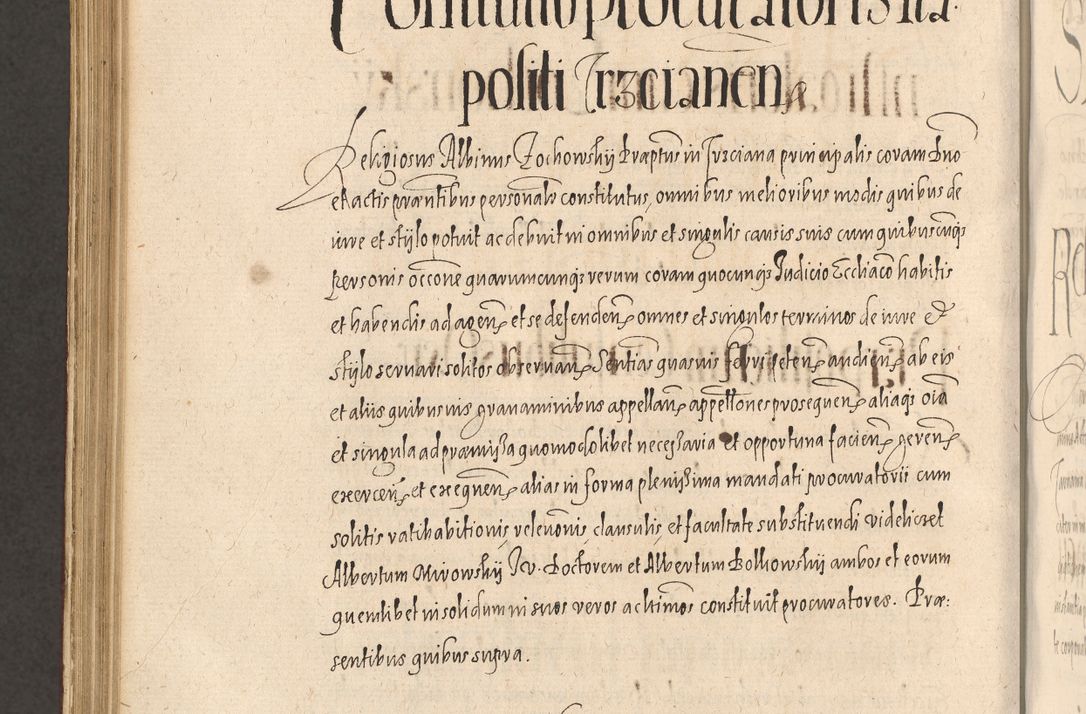 Constitutio procuratoris na
politi Trzcianen
Religiosus Albinus Zochowskij Praeptus in Trzciana principalis coram Dno
et actis praentibus personalr constitutus, omnibus melioribus modis quibus de
iure et stÿlo potuit ac debuit in omnibus et singulis causis suis cum quibuscunqs
personis occone quarumcunqs rerum coram quocunqs Judicio Ecclíaco habitis
et habendis ad agen et se defenden omnes et singulos terminos de iure &
stÿlo servari solitos observan Sentias quasuis ferri peten audien ab eis
et aliis quibusuis gravaminibus appellan appellones prosequen aliaqs oia
et singula ad praemissa quomodolibet necessaria et opportuna facien geren
exercen et exequen alias in forma plenissima mandati procuratorii cum
solitis ratihabitionis relevonis, clausulis, et facultate substituendi videliczet
Albertum Mirowskÿ Iv. Doctorem et Albertum Bolkowskÿ ambos et eorum
quemlibet in solidum ni suos veros ac ltimos constituit procuratores. Prae:
sentibus quibus supra.